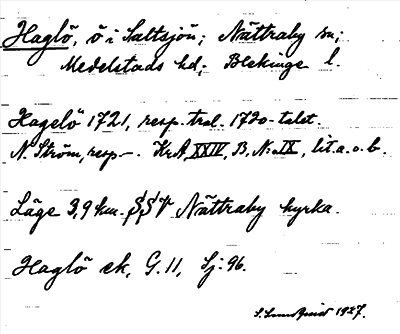 Haglö, ö i Saltsjön; Nättraby sn;
Medelstads hd; Blekinge l.
Hagelö 1721, resp. tral. 1720-talet.
N. Ström, resp –. Kr.A. XXIV, B, N:o IX, lit. a. o. b.
Läge 3,9 km. SSV Nättraby kyrka.
Haglö ek, G. 11, Sj: 96.
1927.